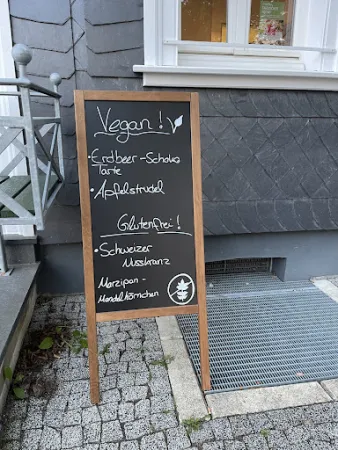 Vegan!
• Erdbeer-Schoko
Tarte
• Apfelstrudel
Glutenfrei!
• Schweizer
Nusskranz
Marzipan-
Mandelhörnchen